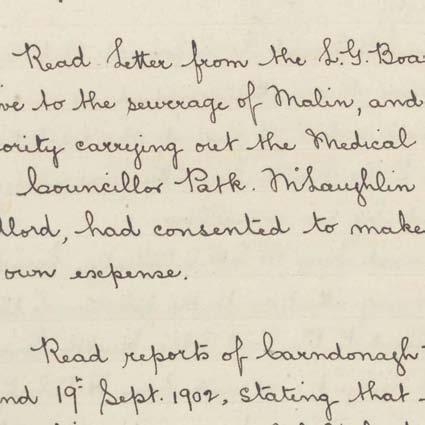 Read Letter from the L.G. Boa
ive to the sewerage of Malin, and
ority carrying out the Medical
Councillor Patk. McLaughlin
dlord, had consented to make
own expense.
Read reports of Carndonagh
nd 19th Sept. 1902, stating that